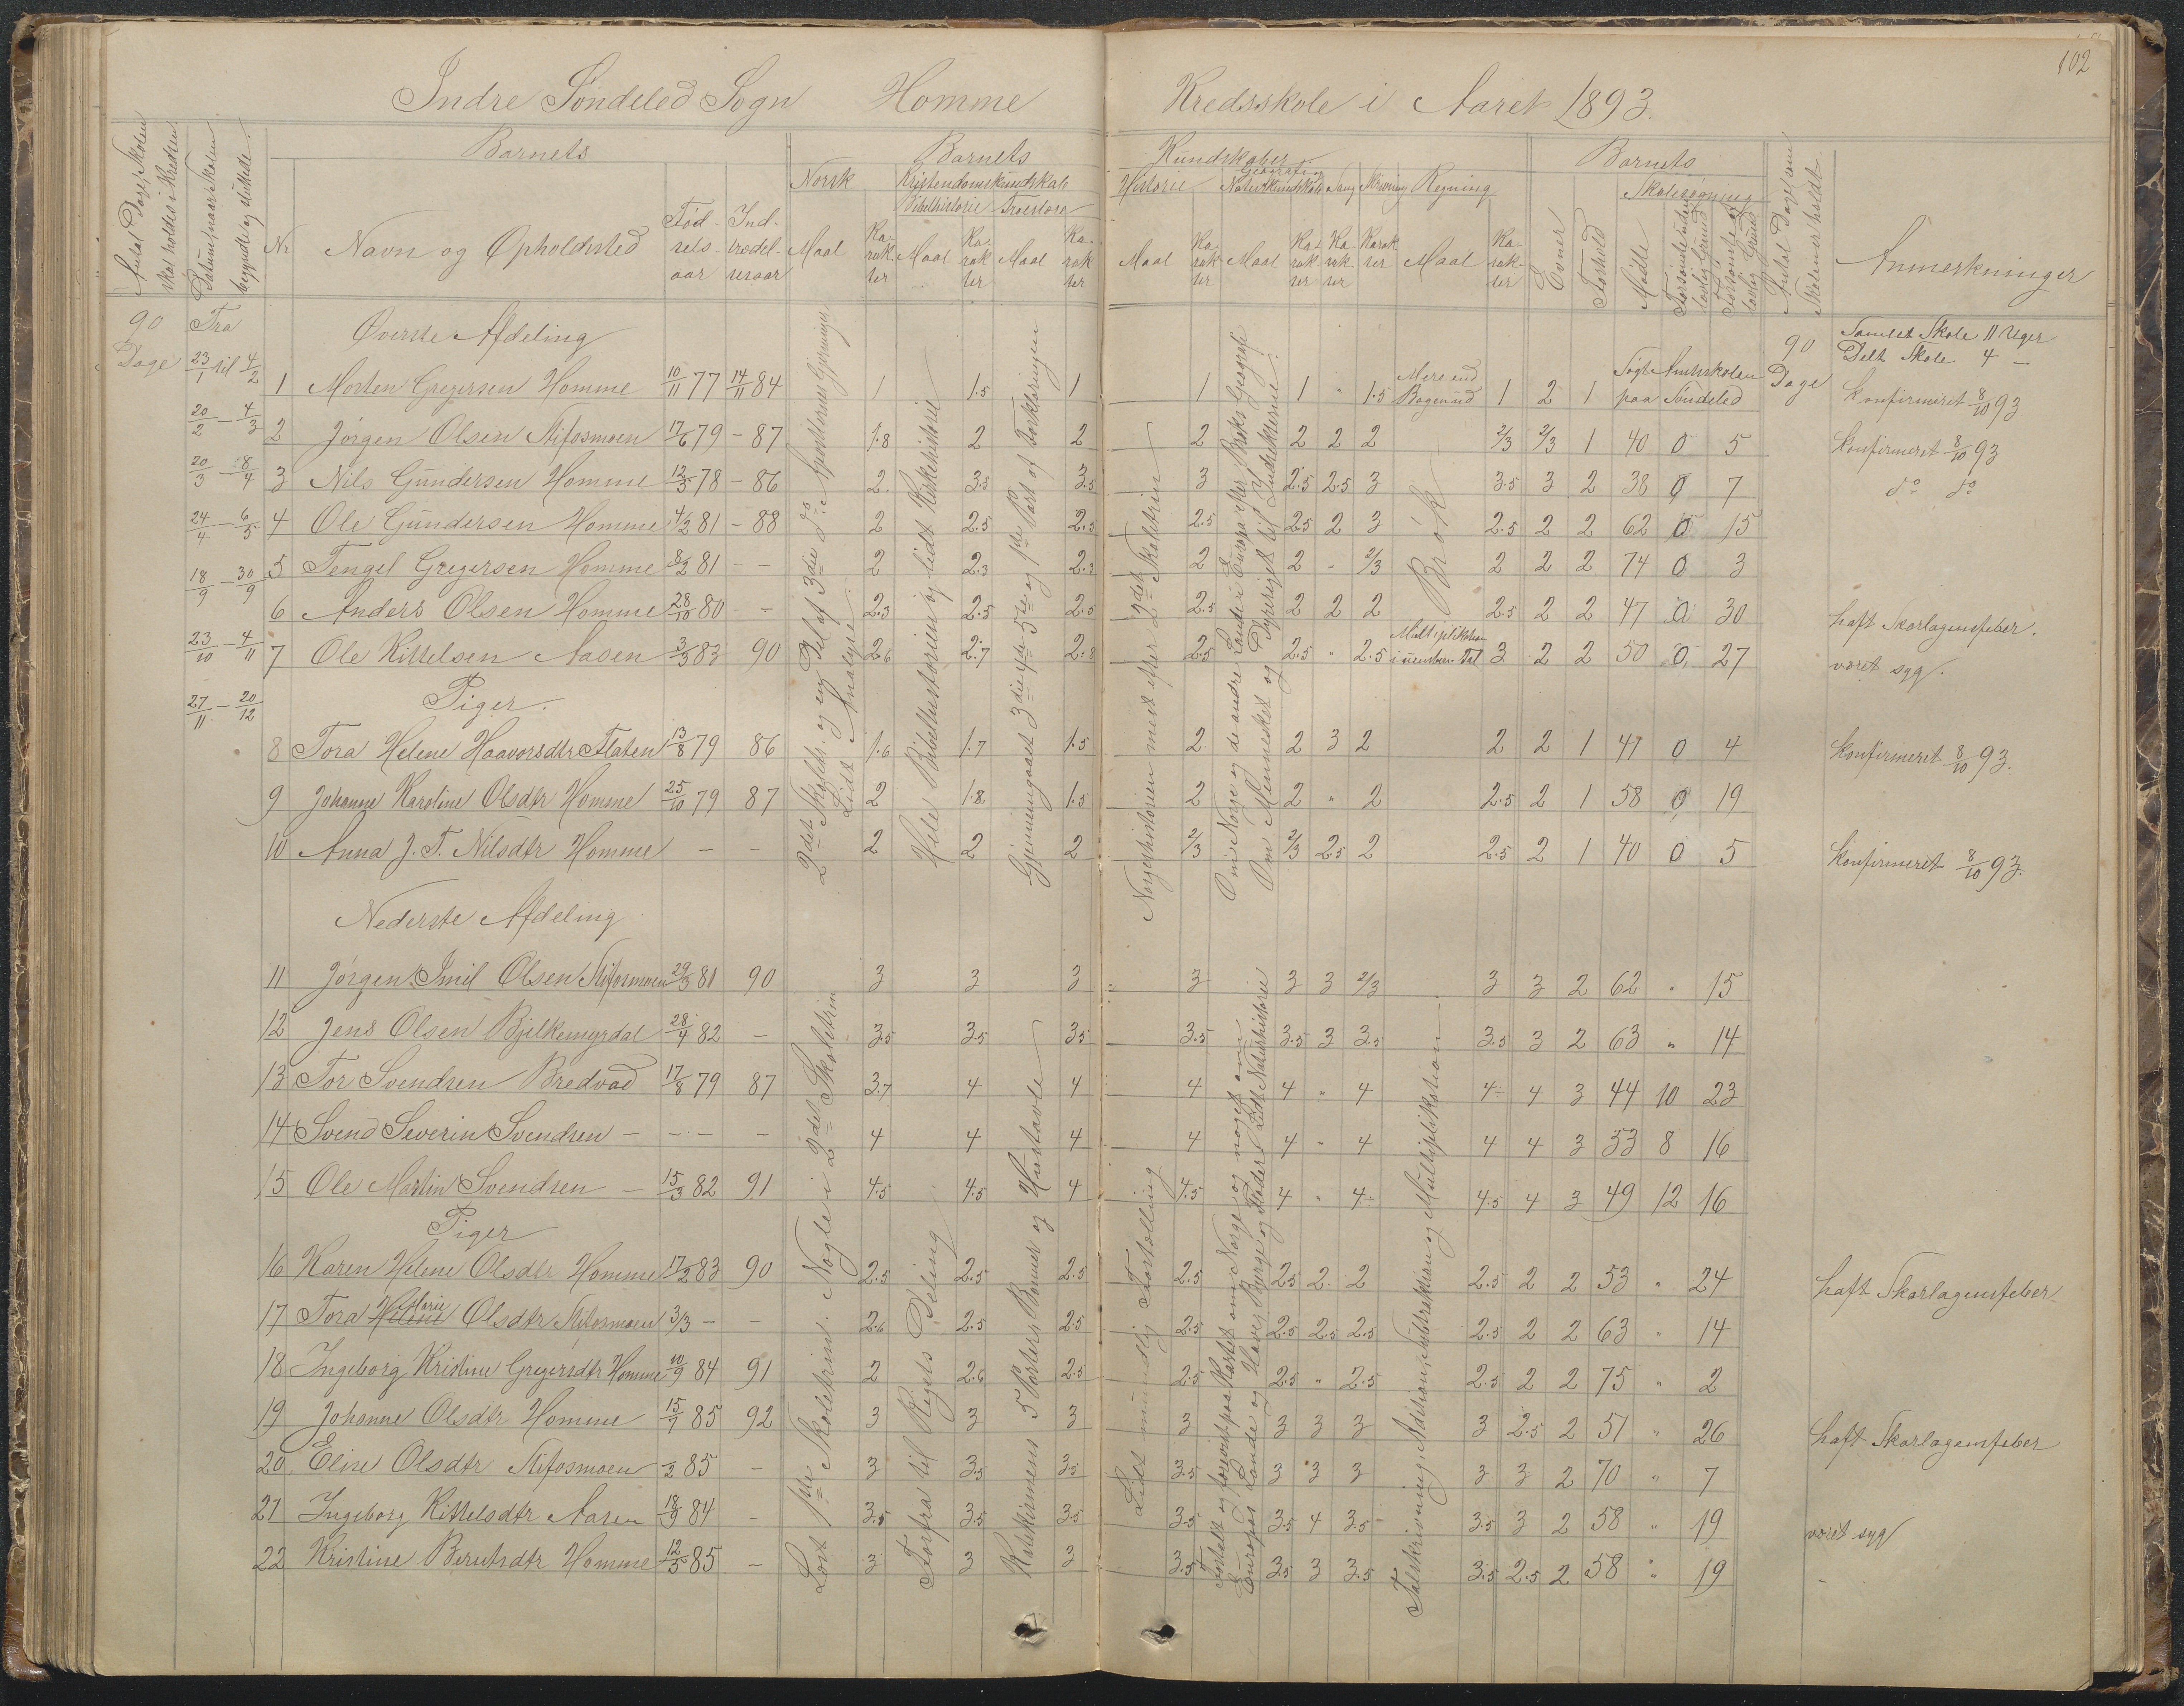 102
Indre Søndeled Sogn Homme Kredsskole i Aaret 1893.
Antal Dage, Skolen skal holdes i Kredsen
Datum, naar Skolen begyndte og sluttede.
Barnets
Barnets Kundskaber.
Barnets
Norsk Kristendomskundskab Historie Geografi og Naturkundskab Sang Skrivning Regning
Bibelhistorie Troeslære
Skolesøgning
Nr Navn og Opholdssted Fødselsaar Indtrædelsesaar Maal Karakter Maal Karakter Maal Karakter Maal Karakter Maal Karakter Karakter Karakter Maal Karakter Evner Forhold Mødte Forsømte uden lovlig Grund Forsømte af lovlig Grund Antal Dage Skolen er holdt. Anmerkninger
90 Dage
Fra
23/1 til 4/2
20/2 – 4/3
20/3 – 8/4
24/4 – 6/5
18/9 – 30/9
23/10 – 4/11
27/11 – 20/12
Øverste Afdeling
90 Dage
Samlet Skole 11 Uger
Delt Skole 4 –
1 Morten Gregersen Homme 10/11 77 14/11 84 1 1.5 1 1 1 " 1.5 Mere end Bogen 1 2 1 Søgt Amtsskolen paa Søndeled Konfirmeret 8/10 93
2 Jørgen Olsen Stifosmoen 17/6 79 – 87 1.8 2 2 2 2 2 2 2/3 2/3 1 40 0 5 Konfirmeret 8/10 93
3 Nils Gundersen Homme 12/3 78 – 86 2. 3.5 3.5 3 2.5 2.5 3 3.5 3 2 38 0 7 do do
4 Ole Gundersen Homme 4/2 81 – 88 2 2.5 2.5 2.5 2.5 2 3 2.5 2 2 62 0 15
5 Tengel Gregersen Homme 8/2 81 – – 2 2.3 2.3 2 2 " 2/3 2 2 2 74 0 3
6 Anders Olsen Homme 28/10 80 – 2.3 2.5 2.5 2.5 2 2 2 2.5 2 2 47 0 30 haft Skarlagensfeber.
7 Ole Kittelsen Aasen 3/3 83 90 2.6 2.7 2.8 2.5 2.5 " 2.5 Multiplikation i uensben. Tal 3 2 2 50 0 27 været syg.
Piger.
8 Tora Helene Haavorsdtr Flaten 13/8 79 86 1.6 1.7 1.5 2 2 3 2 2 2 1 41 0 4 Konfirmeret 8/10 93.
9 Johanne Karoline Olsdtr Homme 25/10 79 87 2 1.8 1.5 2 2 " 2 2.5 2 1 58 0 19
10 Anna J. T. Nilsdtr Homme – – 2 2 2 2/3 2/3 2.5 2 2.5 2 1 40 0 5 Konfirmeret 8/10 93.
2det Skoletr. og en Del af 3die do Gjentagen Gjennemgaaelse. Lidt Analyse.
Hele Bibelhistorien og lidt Kirkehistorie
Gjennemgaaet 3die 4de 5te og 1ste Part af Forklaringen
Norgeshistorien mest efter 2det Skoletrin
Om Norge og de andre Lande i Europa efter Geografi
Om Mennesket og Dyreriget til Insekterne.
Brøk
Nederste Afdeling
11 Jørgen Emil Olsen Stifosmoen 29/3 81 90 3 3 3 3 3 3 2/3 3 3 2 62 " 15
12 Jens Olsen Bjelkemyrdal 28/4 82 – 3.5 3.5 3.5 3.5 3.5 3 3.5 3.5 3 2 63 " 14
13 Tor Svendsen Bredvad 17/8 79 87 3.7 4 4 4 4 " 4 4 4 3 44 10 23
14 Svend Severin Svendsen – – – – 4 4 4 4 4 " 4 4 4 3 53 8 16
15 Ole Martin Svendsen – 15/3 82 91 4.5 4.5 4 4.5 4 " 4 4.5 4 3 49 12 16
Piger
16 Karen Helene Olsdtr Homme 17/2 83 90 2.5 2.5 2.5 2.5 2.5 2 2 2.5 2 2 53 " 24 haft Skarlagensfeber
17 Tora Helene Marie Olsdtr Stifosmoen 3/3 – – 2.6 2.5 2.5 2.5 2.5 2.5 2.5 2.5 2 2 63 " 14
18 Ingeborg Kristine Gregersdtr Homme 10/9 84 91 2 2.6 2.5 2.5 2.5 " 2.5 2.5 2 2 75 " 2
19 Johanne Olsdtr Homme 15/1 85 92 3 3 3 3 3 3 3 3 2.5 2 51 " 26 haft Skarlagensfeber
20 Elise Olsdtr Stifosmoen 2 85 – 3 3.5 3.5 3.5 3 3 3 3 3 2 70 " 7
21 Ingeborg Kittelsdtr Aasen 18/9 84 – 3.5 3.5 3.5 3.5 3.5 4 3.5 3.5 3 2 58 " 19 været syg
22 Kristine Berntsdtr Homme 12/5 85 – 3 3 3 3.5 3.5 3 3.5 3.5 2.5 2 58 " 19
Læst 1ste Skoletrin. Nogle i 2det Skoletrin
Forfra til Rigets Deling
Katekismens 5 Parter, Bønner og Hustavle
Lidt mundtlig Fortælling
Fortalt og forevist paa Kartet om Norge og noget om
Europas Lande og Have, Bjerge og Floder, Lidt Naturhistorie
Talskrivning, Addition, Subtraktion og Multiplikation